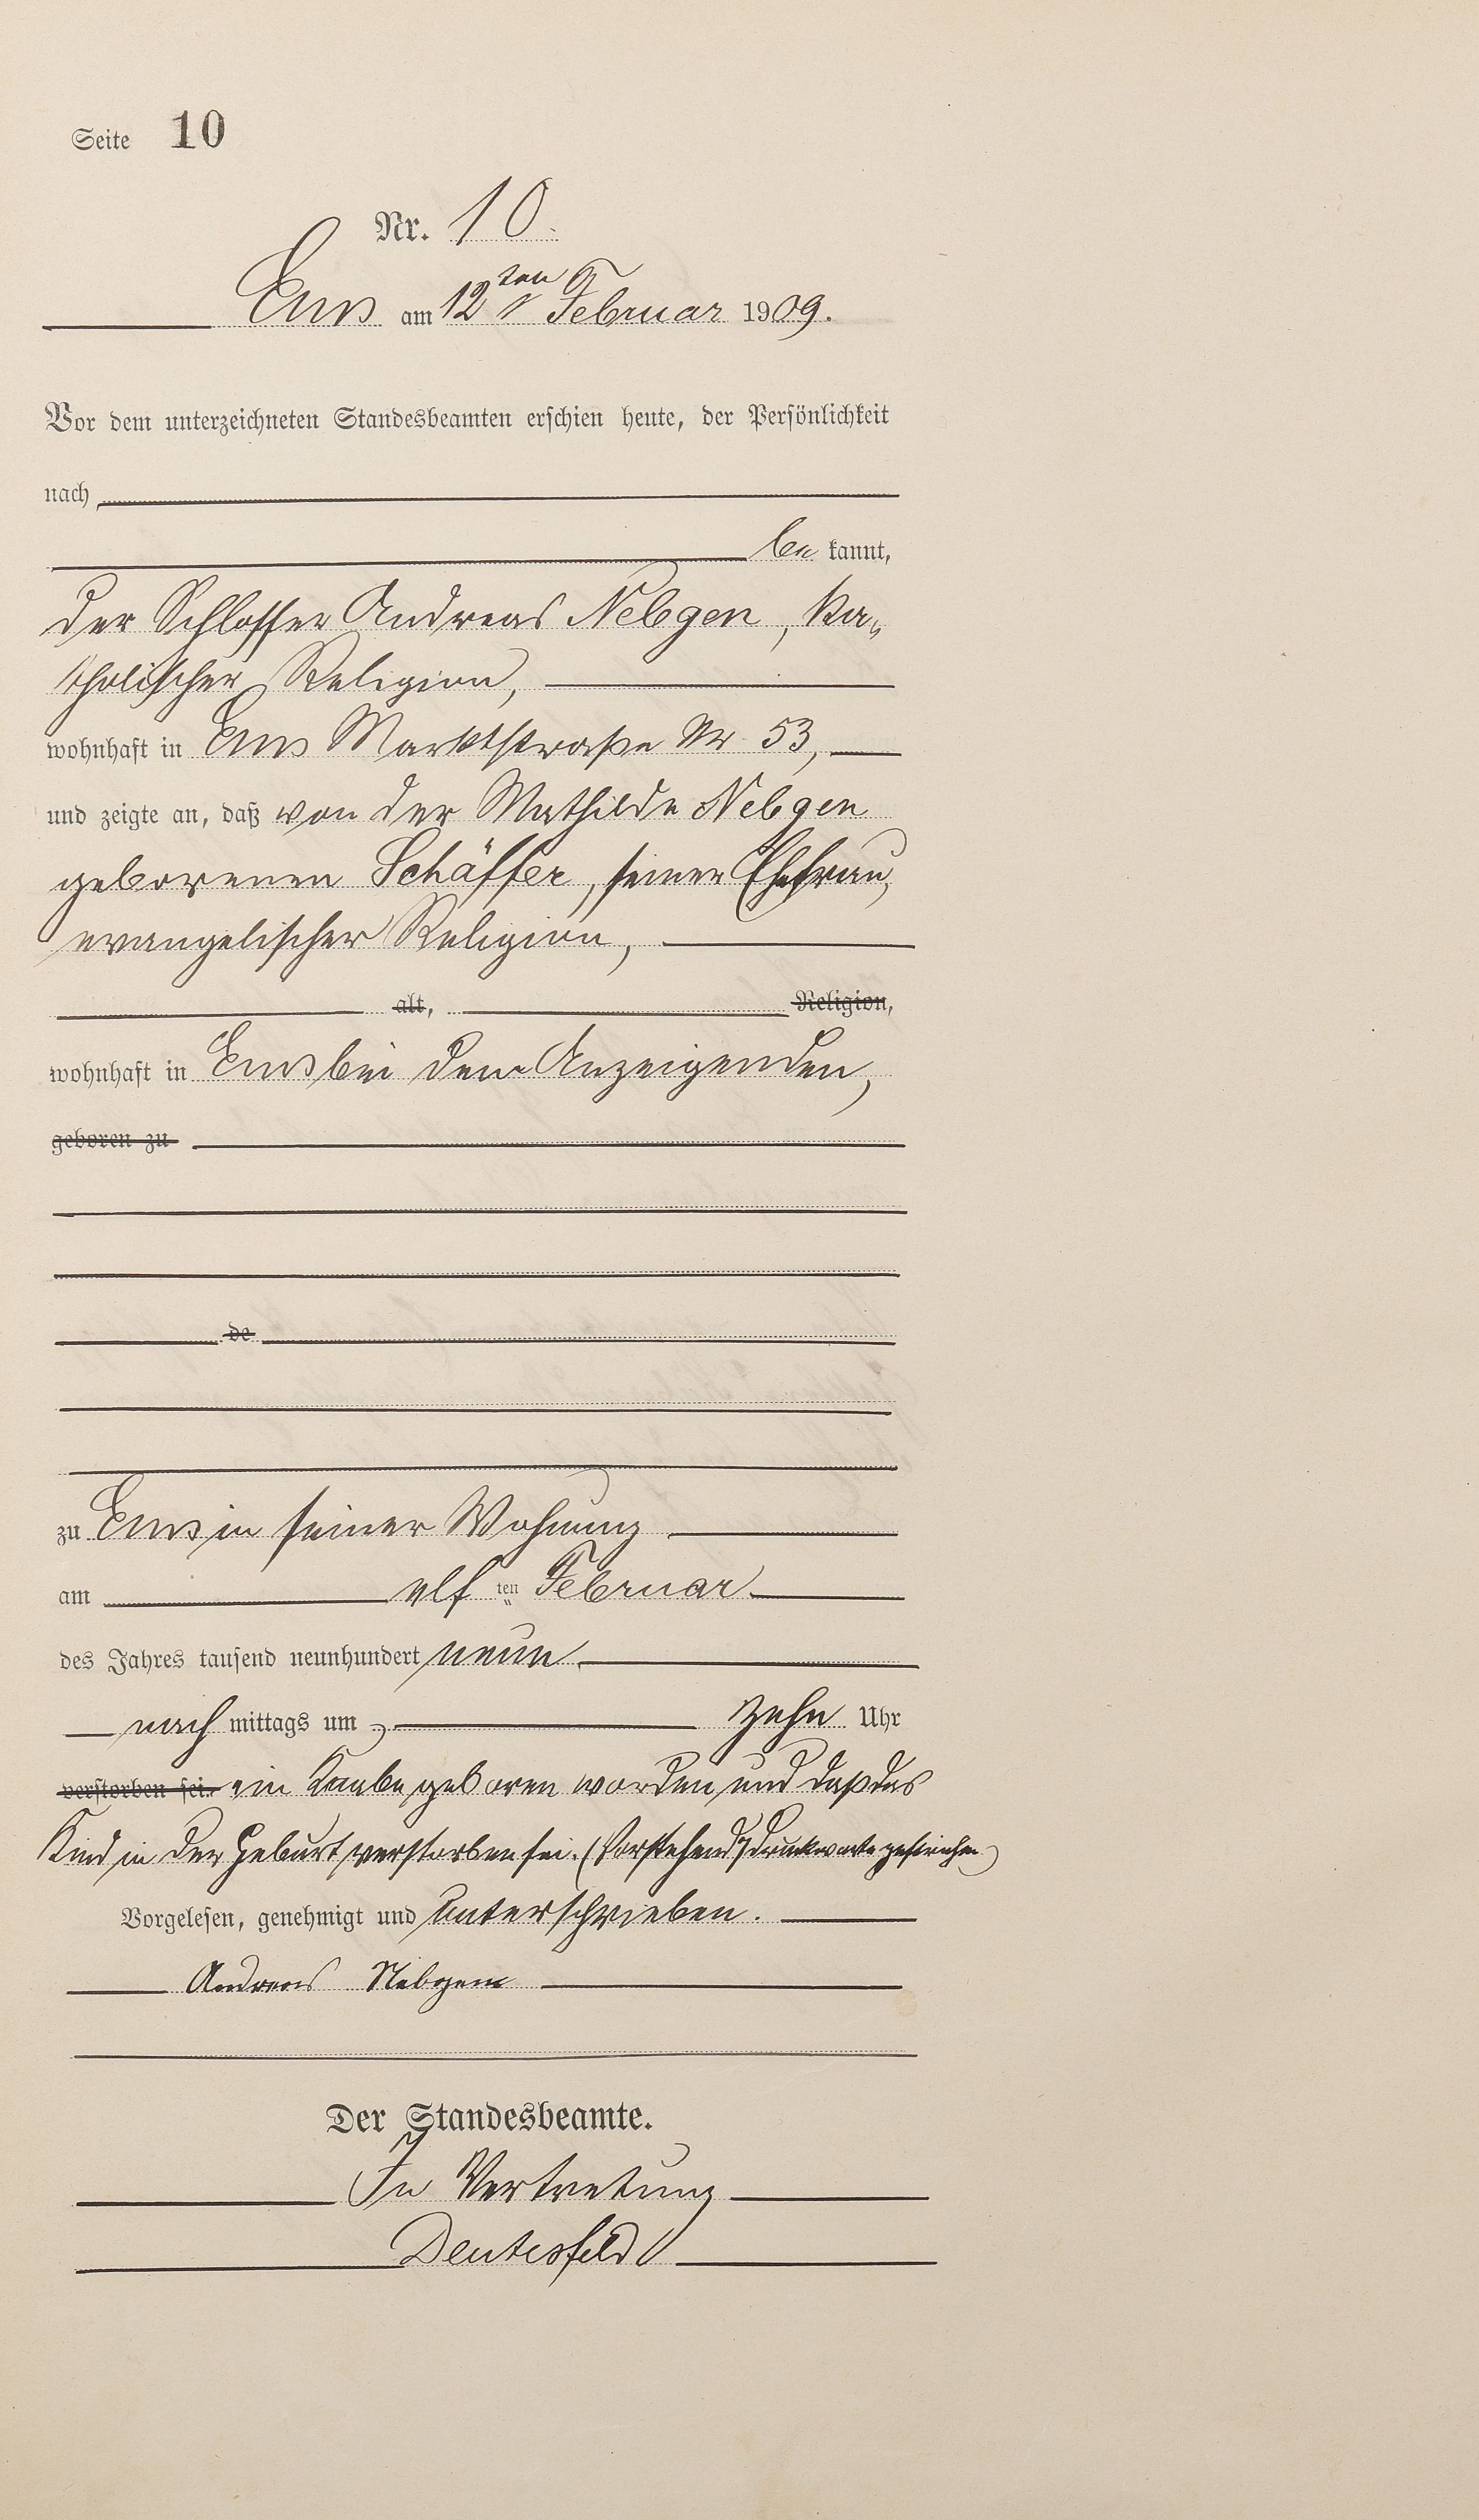 Seite 10
Nr. 10.
Ems am 12ten Februar 1909.
Vor dem unterzeichneten Standesbeamten erschien heute, der Persönlichkeit
nach
be kannt,
der Schlosser Andreas Nebgen, ka-
tholischer Religion,
wohnhaft in Ems Marktstraße Nr. 53,
und zeigte an, daß von der Mathilde Nebgen
geborenen Schäffer, seiner Ehefrau,
evangelischer Religion,
alt, Religion,
wohnhaft in Ems bei dem Anzeigenden,
geboren zu
de
zu Ems in seiner Wohnung
am elf ten Februar
des Jahres tausend neunhundert neun
nach mittags um zehn Uhr
verstorben sei. ein Knabe geboren worden und daß das
Kind in der Geburt verstorben sei. (Vorstehend 7 Druckworte gestrichen)
Vorgelesen, genehmigt und unterschrieben.
Andreas Nebgen
Der Standesbeamte.
In Vertretung